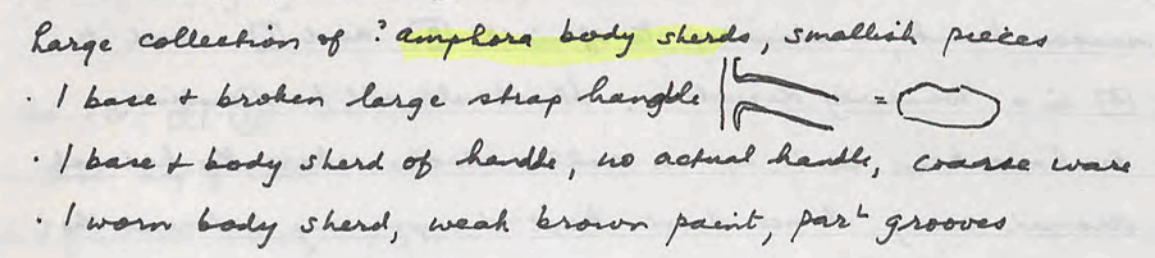 Large collection of ? amphora body sherds, smallish pieces
· 1 base + broken large strap handle =
· 1 base + body sherd of handle, no actual handle, coarse ware
· 1 worn body sherd, weak brown paint, parᴸ grooves